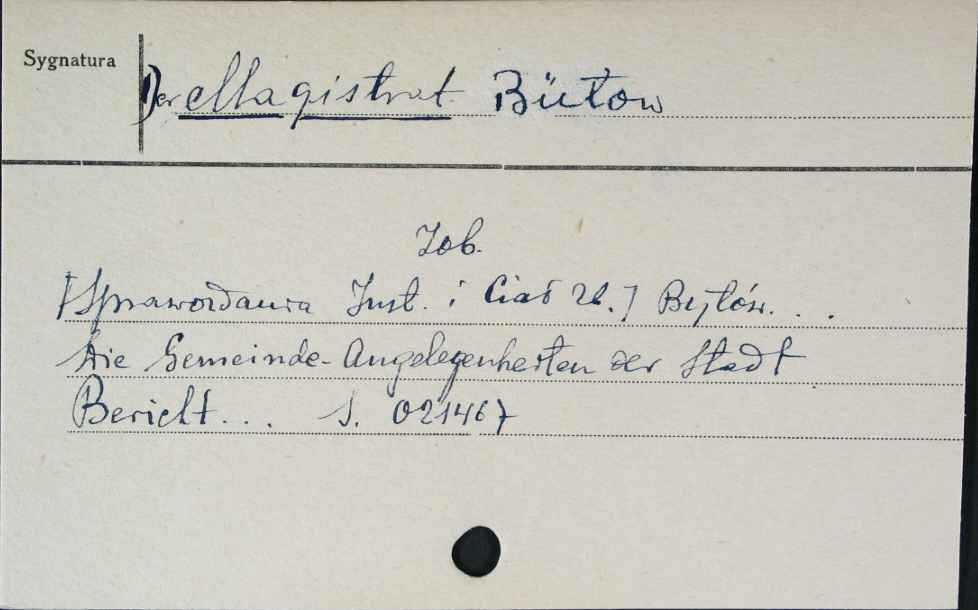 Sygnatura
Der Magistrat Bütow
Zob.
[Sprawozdania Inst. i Ciał Ub.] Bytów. . .
Die Gemeinde-Angelegenheiten der Stadt
Bericht. . . S. 021467